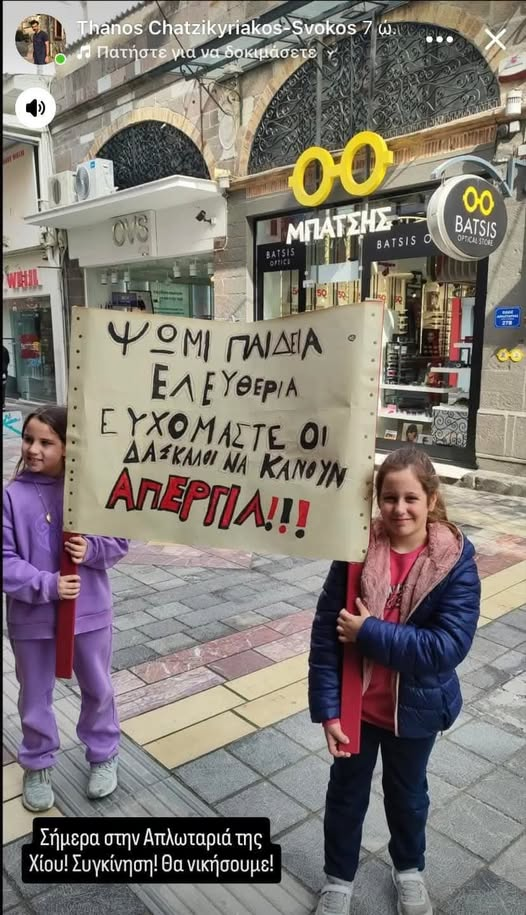 Thanos Chatzikyriakos-Svokos 7 ώ.
Πατήστε για να δοκιμάσετε
OVS
ΜΠΑΤΣΗΣ
BATSIS
OPTICS
BATSIS O
BATSIS
OPTICAL STORE
27B
ΨΩΜΙ ΠΑΙΔΕΙΑ
ΕΛΕΥΘΕΡΙΑ
ΕΥΧΟΜΑΣΤΕ ΟΙ
ΔΑΣΚΑΛΟΙ ΝΑ ΚΑΝΟΥΝ
ΑΠΕΡΓΙΑ!!!
Σήμερα στην Απλωταριά της
Χίου! Συγκίνηση! Θα νικήσουμε!